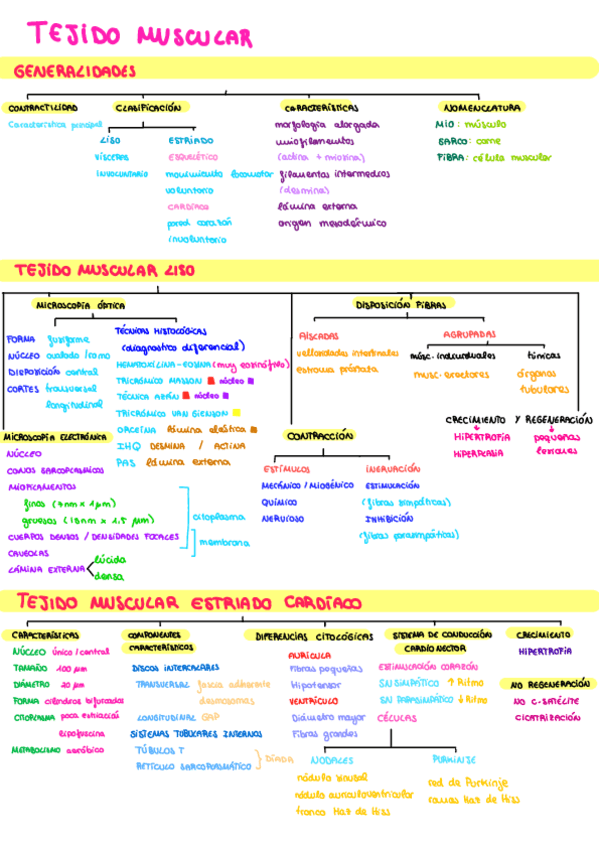 TEJIDO MUSCULAR
GENERALIDADES
CONTRACTILIDAD
Característica principal
CLASIFICACIÓN
LISO
VÍSCERAS
INVOLUNTARIO
ESTRIADO
ESQUELÉTICO
movimiento locomotor
voluntario
CARDÍACO
pared corazón
involuntario
CARACTERÍSTICAS
morfología alargada
miofilamentos
(actina + miosina)
filamentos intermedios
(desmina)
lámina externa
origen mesodérmico
NOMENCLATURA
MIO: músculo
SARCO: carne
FIBRA: célula muscular
TEJIDO MUSCULAR LISO
MICROSCOPÍA ÓPTICA
FORMA fusiforme
NÚCLEO ovalado /como
DISPOSICIÓN central
CORTES transversal
longitudinal
TÉCNICAS HISTOLÓGICAS
(diagnostico diferencial)
HEMATOXILINA-EOSINA (muy eosinófilo)
TRICRÓMICO MASSON núcleo
TÉCNICA AZÁN núcleo
TRICRÓMICO VAN GIENSON
ORCEÍNA lámina elástica
IHQ DESMINA / ACTINA
PAS lámina externa
MICROSCOPÍA ELECTRÓNICA
NÚCLEO
CONOS SARCOPLASMICOS
MIOFILAMENTOS
finos (7nm x 1 μm)
gruesos (15nm x 1.5 μm)
CUERPOS DENSOS / DENSIDADES FOCALES
CAVEOLAS
LÁMINA EXTERNA
lúcida
densa
citoplasma
membrana
DISPOSICIÓN FIBRAS
AISCADAS
vellosidades intestinales
estroma próstata
AGRUPADAS
músc. individuales
musc. erectores
túnicas
órganos
tubulares
CONTRACCIÓN
ESTÍMULOS
MECÁNICO / MIOGÉNICO
QUÍMICO
NERVIOSO
INERVACIÓN
ESTIMULACIÓN
(fibras simpáticas)
INHIBICIÓN
(fibras parasimpáticas)
CRECIMIENTO Y REGENERACIÓN
HIPERTROFIA
HIPERPLASIA
pequeñas
lesiones
TEJIDO MUSCULAR ESTRIADO CARDÍACO
CARACTERÍSTICAS
NÚCLEO único/central
TAMAÑO 100 μm
DIÁMETRO 20 μm
FORMA cilindros bifurcados
CITOPLASMA poca estriación
lipofuscina
METABOLISMO aeróbico
COMPONENTES
CARACTERÍSTICOS
DISCOS INTERCALARES
TRANSVERSAL fascia adherente
desmosomas
LONGITUDINAL GAP
SISTEMAS TUBULARES INTERNOS
TÚBULOS T
RETÍCULO SARCOPLASMÁTICO
DÍADA
DIFERENCIAS CITOLÓGICAS
AURÍCULA
Fibras pequeñas
Hipotensor
VENTRÍCULO
Diámetro mayor
Fibras grandes
SISTEMA DE CONDUCCIÓN
CARDIO NECTOR
ESTIMULACIÓN CORAZÓN
SN SIMPÁTICO ↑ Ritmo
SN PARASIMPÁTICO ↓ Ritmo
CÉLULAS
NODALES
nódulo sinusal
nódulo auriculoventricular
tronco Haz de Hiss
PURKINJE
red de Purkinje
ramas Haz de Hiss
CRECIMIENTO
HIPERTROFÍA
NO REGENERACIÓN
NO C-SATÉLITE
CICATRIZACIÓN